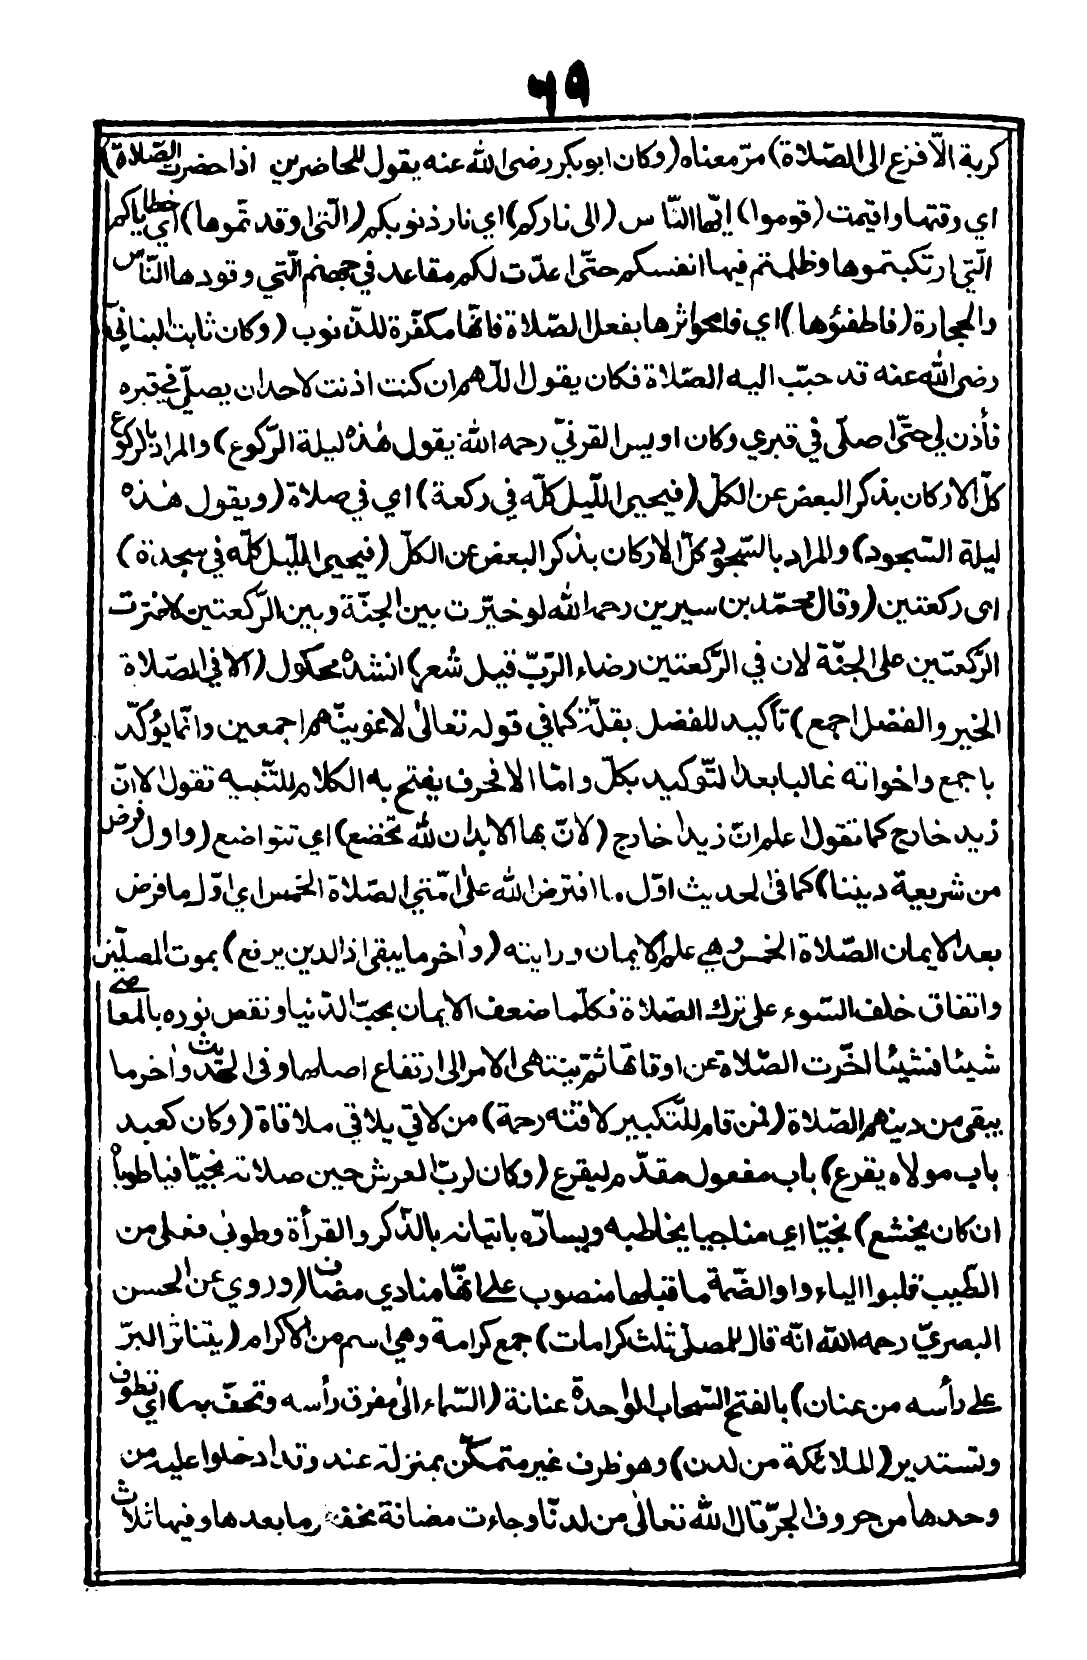 ٦٩
كربة الّا فزع الى الصّلاة) مرّ معناه (وكان ابو بكر رضى اللّه عنه يقول للحاضرين اذا حضرت الصّلاة)
اي وقتها واقيمت (قوموا) ايّها النّاس (الى ناركم) اي نار ذنوبكم (الّتى اوقدتموها) اي خطاياكم
الّتي ارتكبتموها وظلمتم فيها انفسكم حتّى اعدّت لكم مقاعد في جهنم الّتي وقودها النّاس
والحجارة (فاطفئوها) اي فامحوا اثرها بفعل الصلاة فانّها مكفّرة للذّنوب (وكان ثابت البناني
رضى اللّه عنه قد حبّب اليه الصّلاة فكان يقول اللّهم ان كنت اذنت لاحد ان يصلّي في قبره
فأذن لي حتّى اصلّى في قبري وكان اويس القرنيّ رحمه اللّه يقول هذه ليلة الرّكوع) والمراد بالركوع
كلّ الاركان بذكر البعض عن الكلّ (فيحيى اللّيل كلّه في ركعة) اي في صلاة (ويقول هذه
ليلة السّجود) والمراد بالسّجود كلّ الاركان بذكر البعض عن الكلّ (فيحيى اللّيل كلّه في سجدة)
اى ركعتين (وقال محمّد بن سيرين رحمه اللّه لو خيّرت بين الجنّة وبين الرّكعتين لاخترت
الرّكعتين على الجنّة لان في الرّكعتين رضاء الرّبّ قيل شعر) انشده مكحول (الا في الصّلاة
الخير والفضل اجمع) تأكيد للفضل بقلّة كما في قوله تعالى لاغوينّهم اجمعين وانّما يؤكّد
باجمع واخواته غالبا بعد التّوكيد بكلّ وامّا الا فحرف يفتح به الكلام للتّنبيه تقول الا انّ
زيد خارج كما تقول اعلم انّ زيدا خارج (لانّ بها الابدان للّه تخضع) اي تتواضع (واول فرض
من شريعة ديننا) كما فى الحديث اوّل ما افترض اللّه على امّتي الصّلاة الخمس اي اوّل ما فرض
بعد الايمان الصّلاة الخمس وهي علم الايمان ورايته (وآخر ما يبقى اذ الدين يرفع) بموت المصلّين
واتفاق خلف السّوء على ترك الصّلاة فكلّما ضعف الايمان بحبّ الدّنيا ونقص نوره بالمعاصي
شيئا فشيئا اخّرت الصّلاة عن اوقاتها ثمّ ينتهى الامر الى ارتفاع اصلها وفى الحديث وآخر ما
يبقى من دينهم الصّلاة (فمن قام للتّكبير لاقته رحمة) من لاقى يلاقي ملاقاة (وكان كعبد
باب مولاه يقرع) باب مفعول مقدّم ليقرع (وكان لربّ العرش حين صلاته نجيّا فيا طوباه
ان كان يخشع) نجيّا اي مناجيا يخاطبه ويسارّه باتيانه بالذّكر والقرأة وطوبى فعلى من
الطّيب قلبوا الياء واوا لضمّة ما قبلها منصوب على انّها منادي مضاف (وروي عن الحسن
البصريّ رحمه اللّه انّه قال للمصلّي ثلث كرامات) جمع كرامة وهي اسم من الاكرام (يتناثر البرّ
على رأسه من عنان) بالفتح السّحاب الواحدة عنانة (السّماء الى مفرق رأسه وتحفّ به) اي تطوف
وتستدير (الملائكة من لدن) وهو ظرف غير متمكّن بمنزلة عند وقد ادخلوا عليه من
وحدها من حروف الجرّ قال اللّه تعالى من لدنّا وجاءت مضافة بخفض ما بعدها وفيها ثلاث